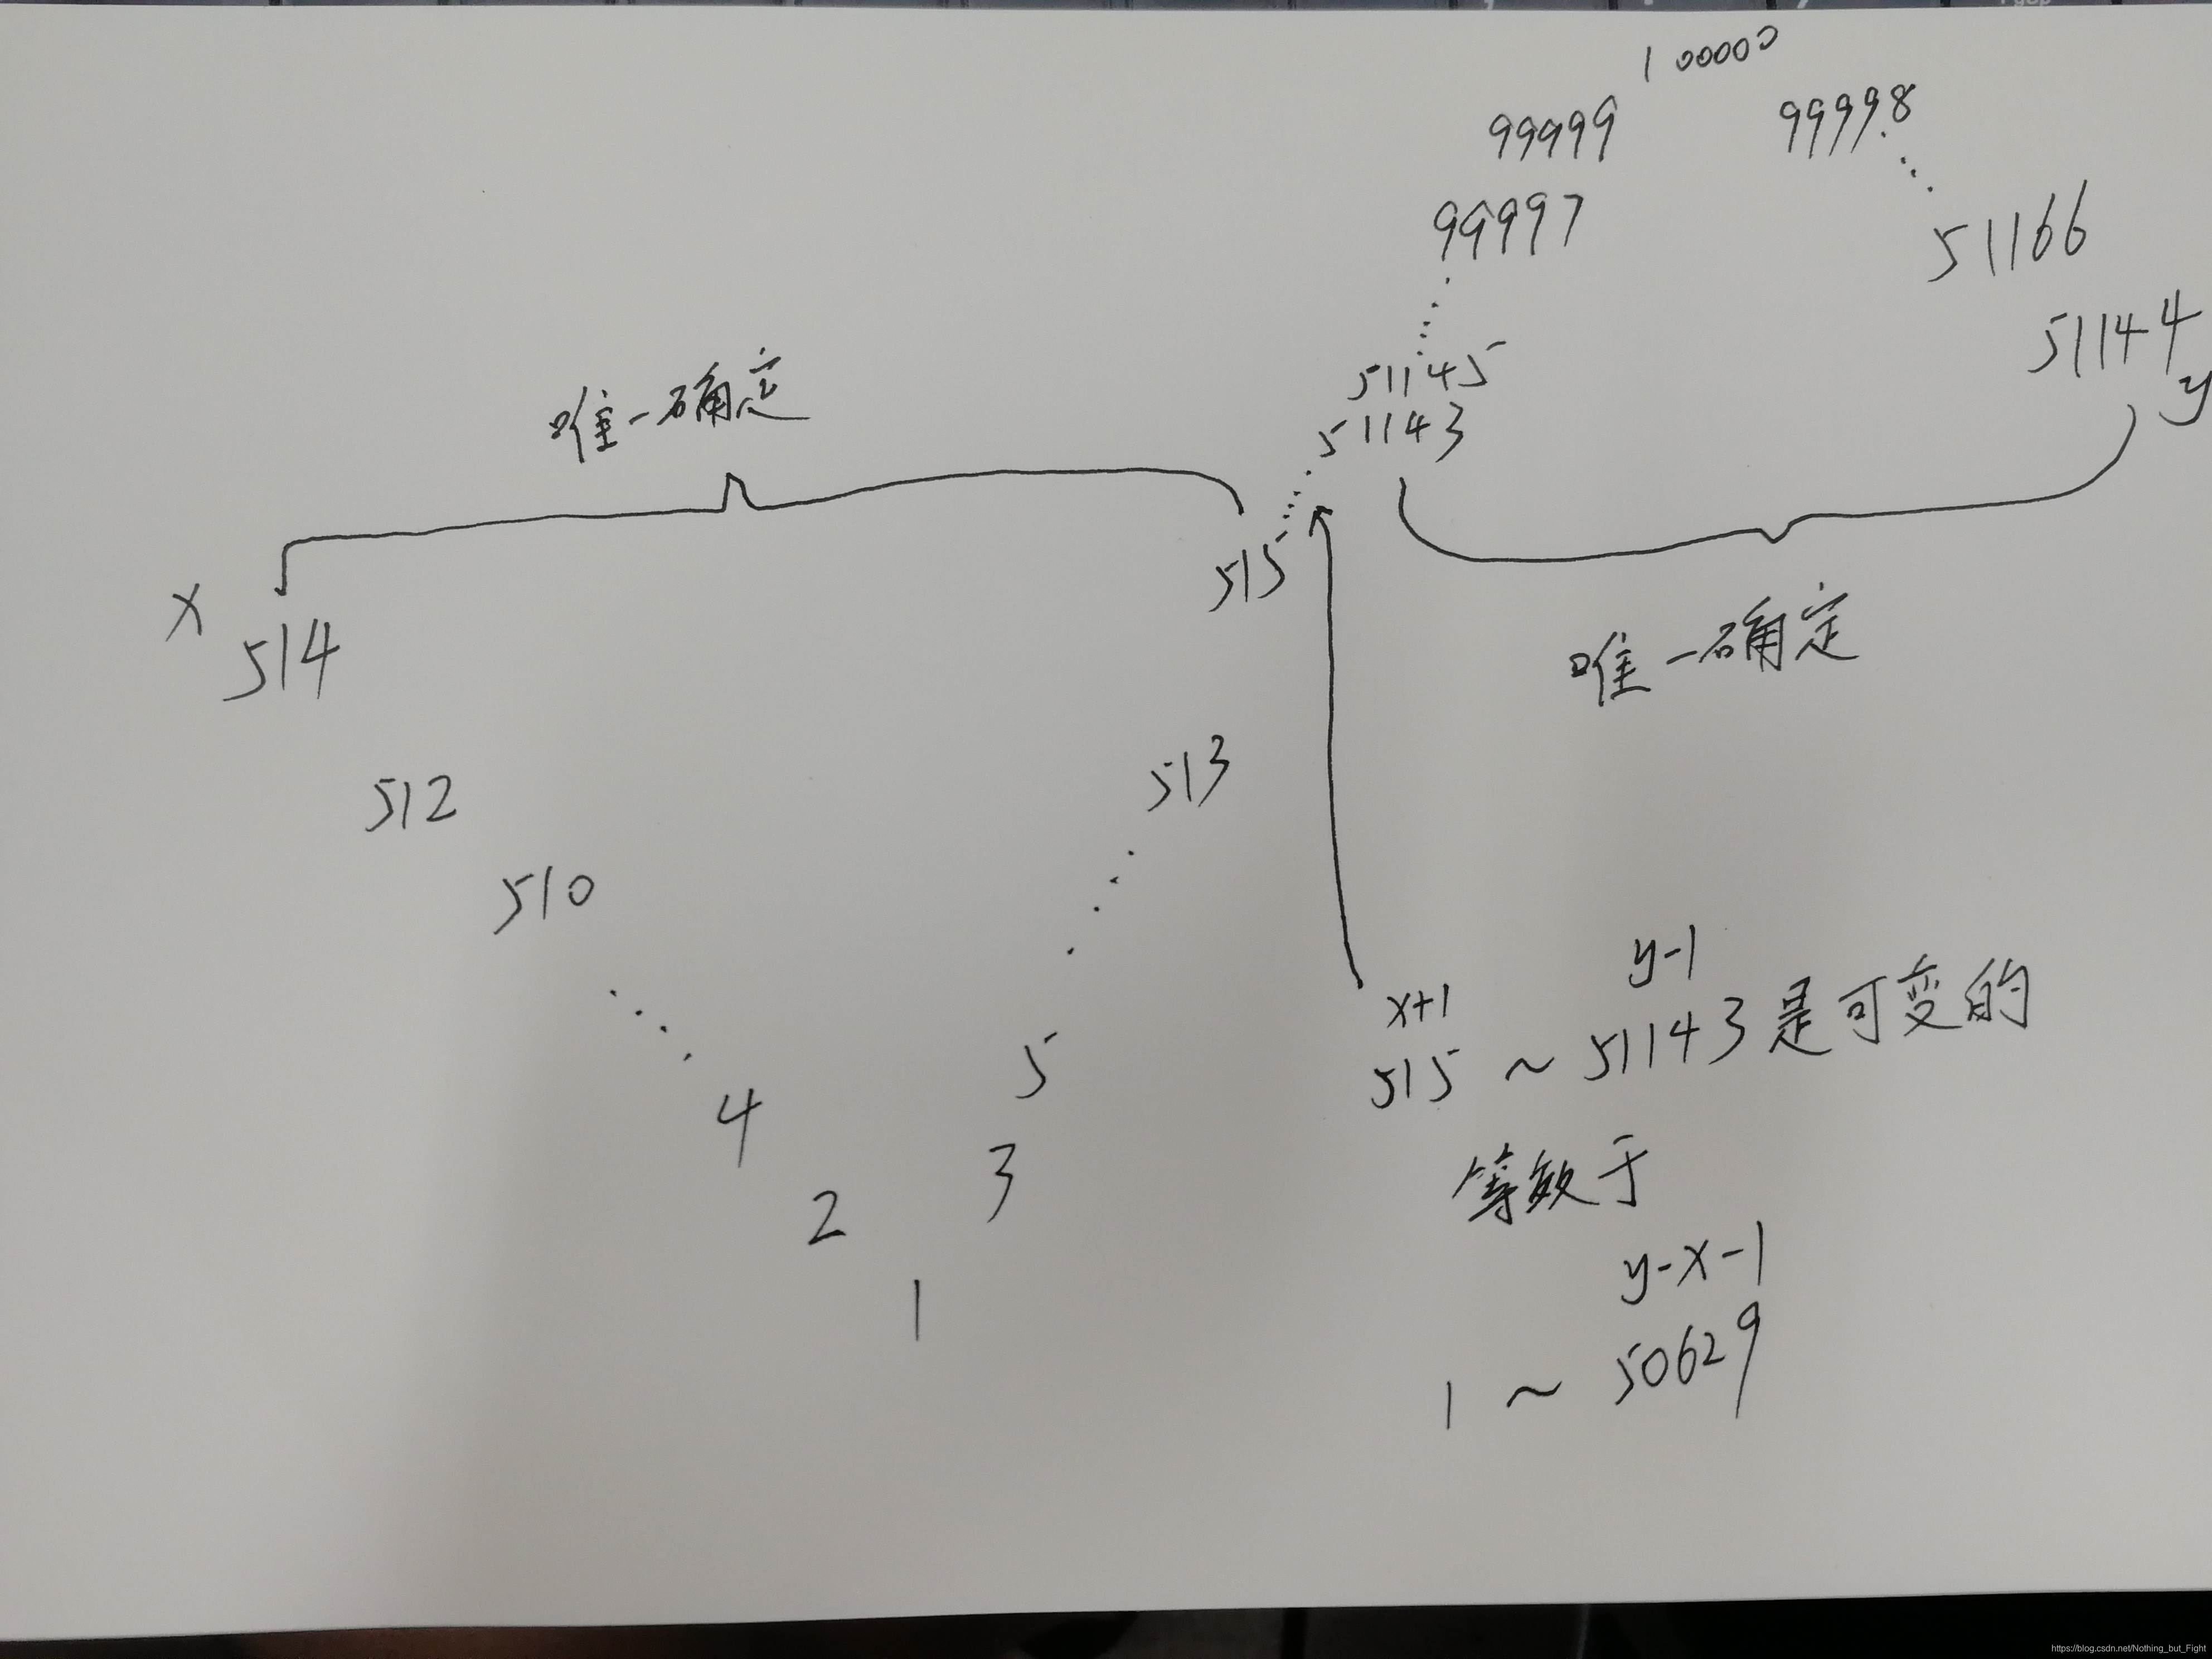 100000
99999 99998
99997
51166
51145
51144
y
51143
唯一确定
515
x
514
唯一确定
513
512
510
5
4
3
2
1
x+1 y-1
515 ~ 51143是可变的
等效于
y-x-1
1 ~ 50629
https://blog.csdn.net/Nothing_but_Fight